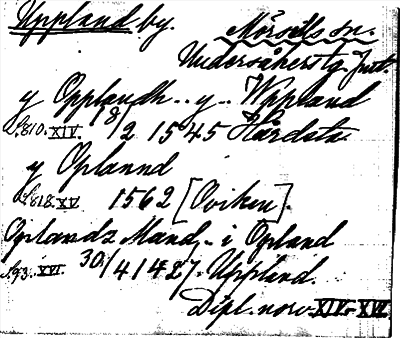 Uppland by. Mörsills sn.
Undersåkers tg. Jmt.
y Opplandh.. y.. Wppland
S. 810. XIV. 8/2 1545 Hårdsta.
y Oplannd
S. 818. XV 1562 [Oviken].
Oplandz Mand, - i Opland
S. 93. XVI. 30/4 1427. Uppland.
Dipl. norv. XIV-XVI.